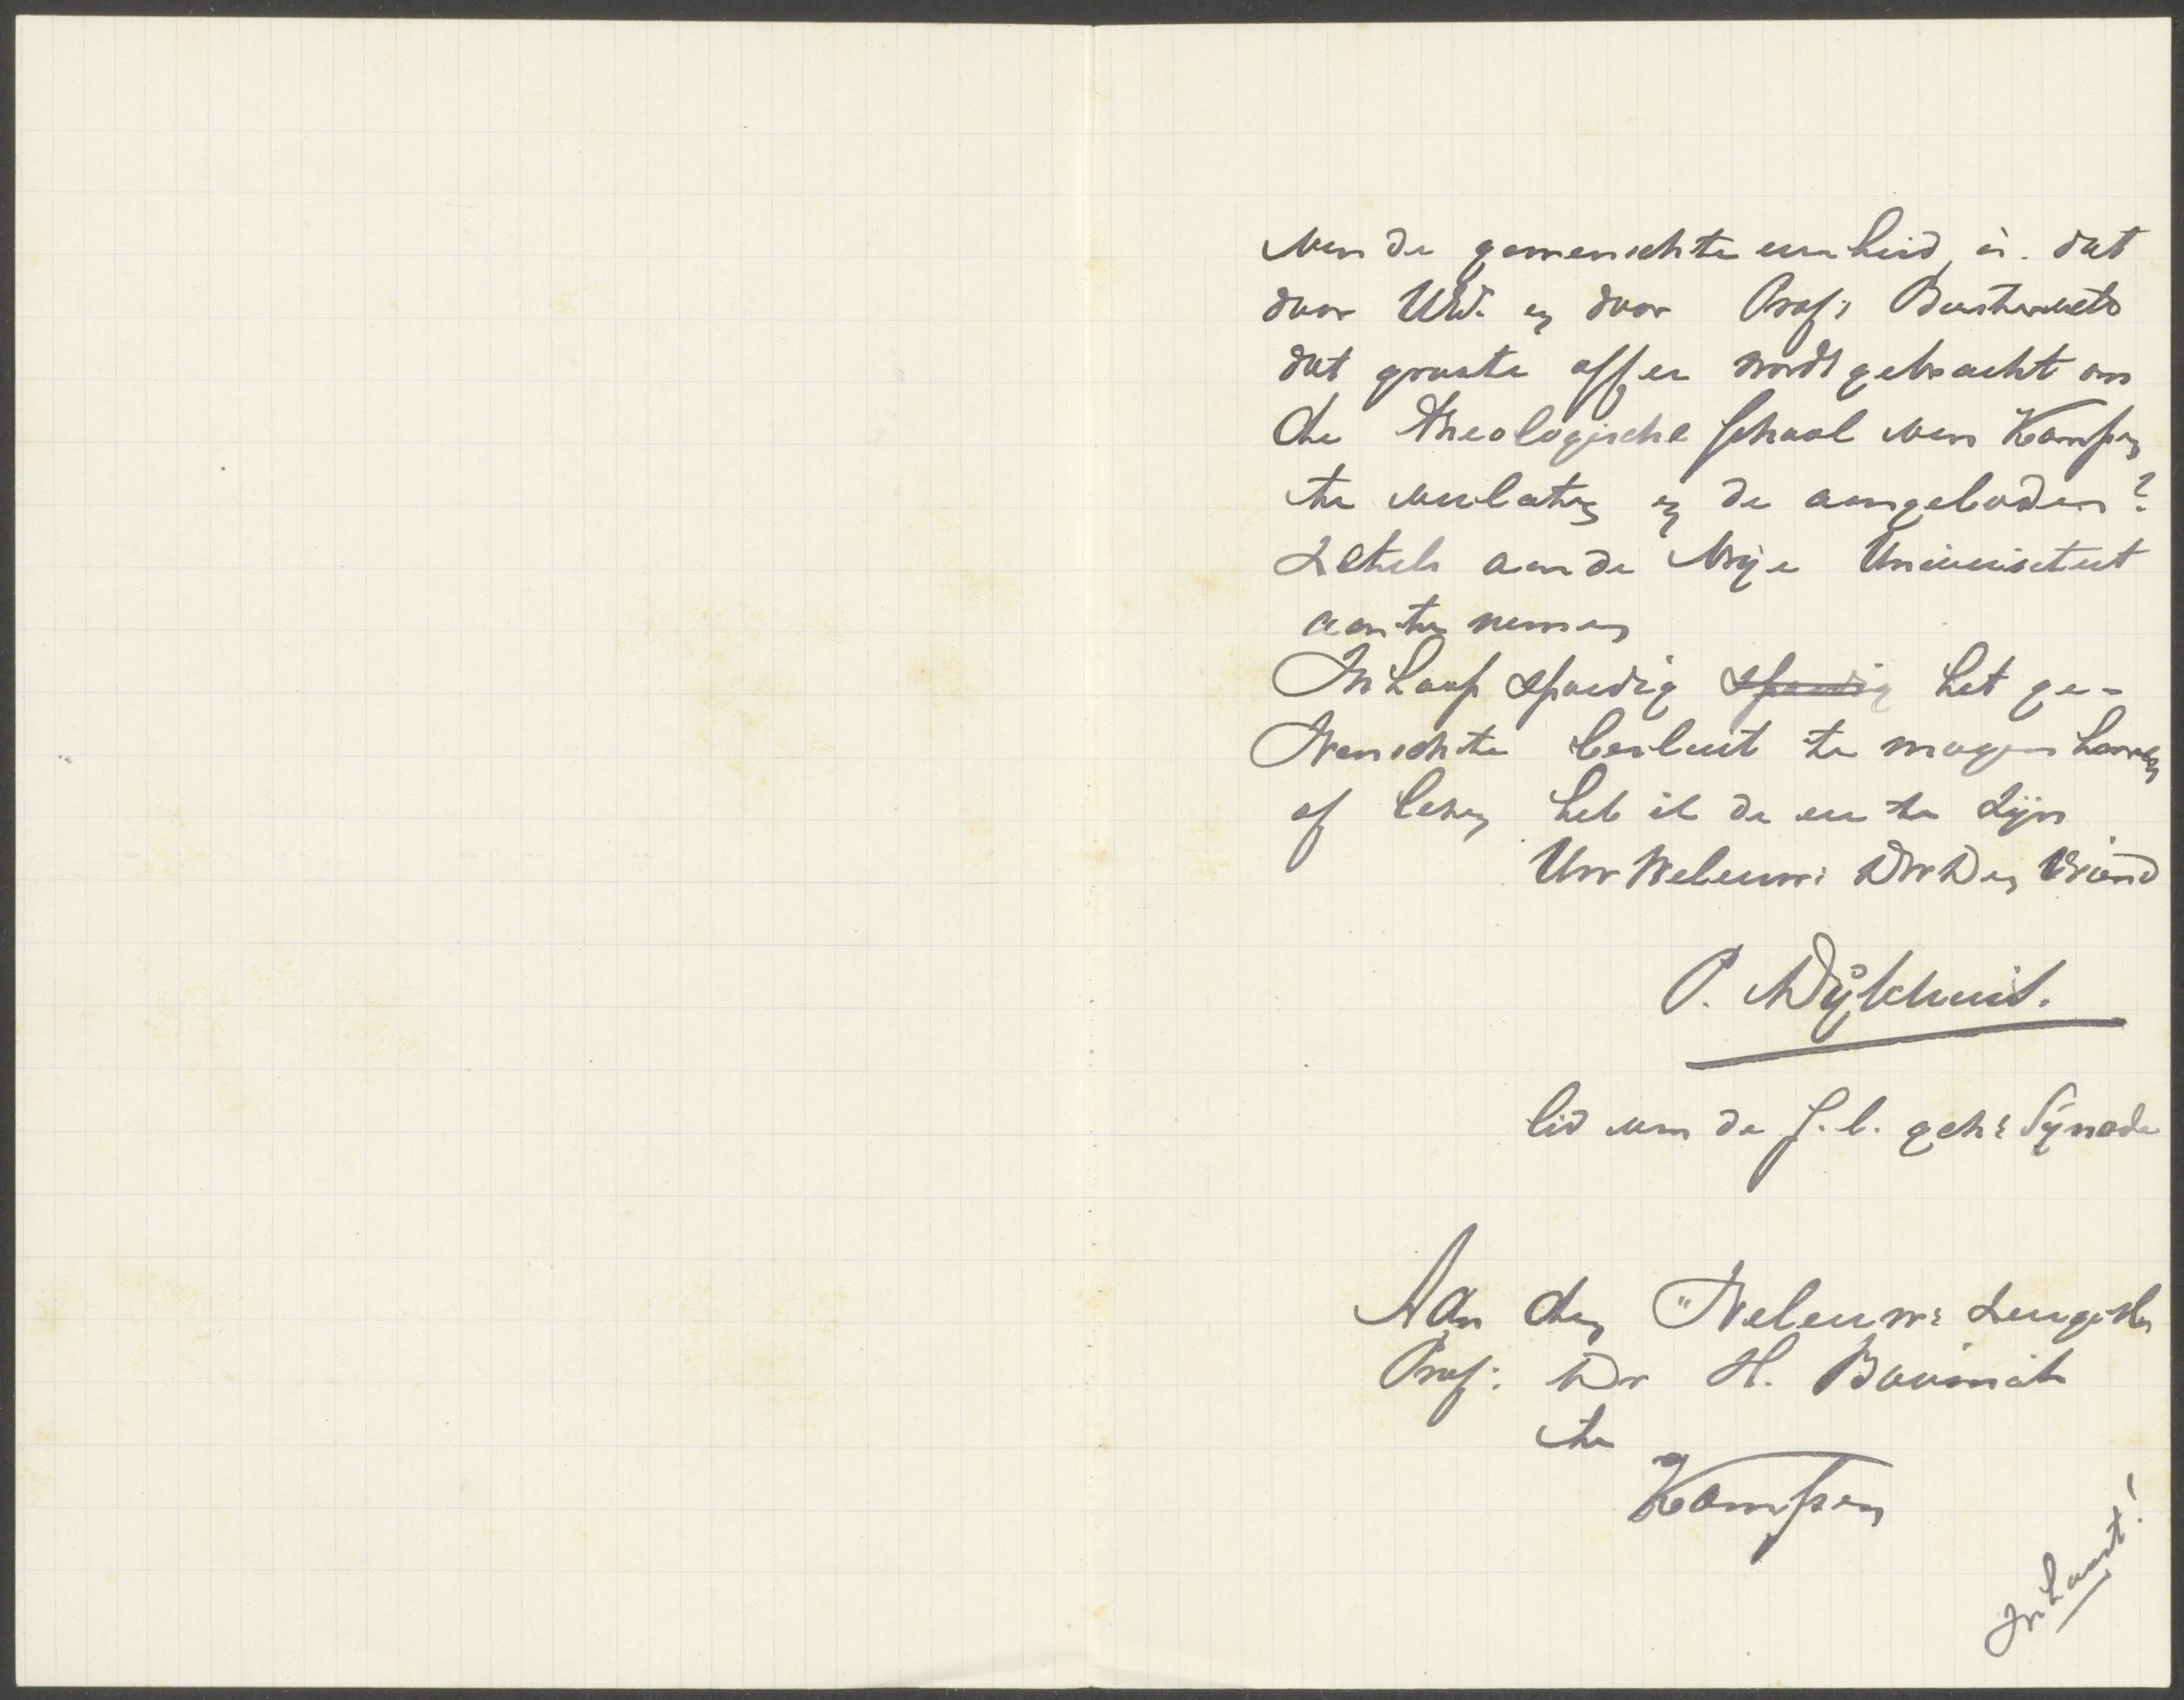 van de gewenschte eenheid, is. dat
door UWE en door Prof: Biesterveld
dat groote offer wordt gebracht om
de Theologische School van Kampen
te verlaten en de aangeboden?
Zetels aan de Vrije Universiteit
aan te nemen
In hoop spoedig spoedig het ge-
wenschte besluit te mogen hooren
of lezen heb ik de eer te zijn
Uw WelEerw: Dw Dn Vriend
P. Dijksterhuis.
lid van de j.l. geh: Synode
Aan den WelEerw: Zeergel
Prof: Dr H. Bavinck
te
Kampen
In haast!